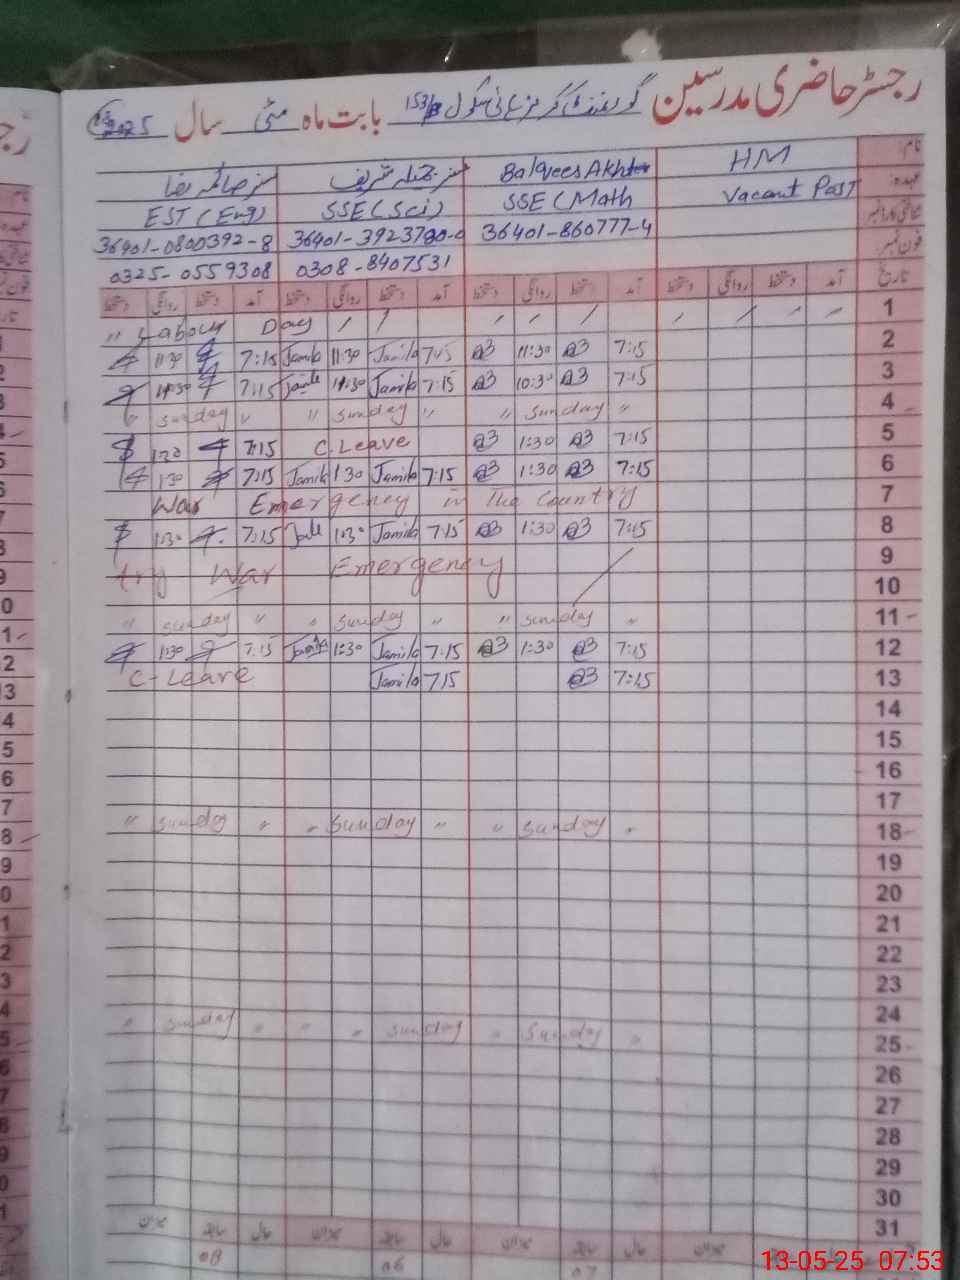 رجسٹر حاضری مدرسین گورنمنٹ گرلز ہائی سکول 153/ بابت ماہ مئی سال 2025
نام: HM Balqees Akhter مسز جمیلہ شریف مسز صائمہ رضا
عہدہ: Vacant Post SSE (Math SSE (Sci) EST (Eng)
36401-860777-4 36401-0800392-8
0308-8407531 0325-0559308
تاریخ آمد دستخط روانگی دستخط آمد دستخط روانگی دستخط آمد دستخط روانگی دستخط آمد دستخط روانگی دستخط
1 " Labour Day / / / / / / / / /
2 7:15 11:30 7:15 Jamila 11:30 Jamila 7:15
3 7:15 10:30 7:15 Jamila 7:15
4 " Sunday " " Sunday " " Sunday "
5 7:15 1:30 C.Leave 7:15 1:30
6 7:15 1:30 7:15 Jamila 1:30 Jamila 7:15 1:30
7 War Emergency in the Country
8 7:15 1:30 7:15 Jamila 1:30 7:15 1:30
9 War Emergency
10
11 " Sunday " " Sunday " " Sunday "
12 7:15 1:30 7:15 Jamila 1:30 Jamila 7:15 1:30
13 7:15 7:15 Jamila C-Leave
14
15
16
17
18 " Sunday " " Sunday " " Sunday "
19
20
21
22
23
24
25 " Sunday " " Sunday " " Sunday "
26
27
28
29
30
31
حال سابقہ میزان حال سابقہ میزان حال سابقہ میزان حال سابقہ میزان
07 06 08
13-05-25 07:53